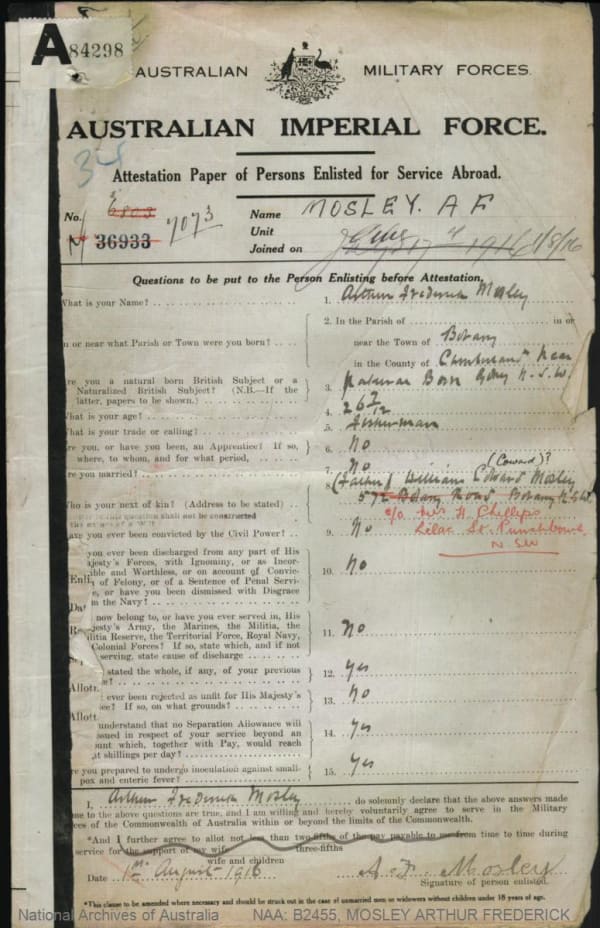 A 84298
AUSTRALIAN MILITARY FORCES.
AUSTRALIAN IMPERIAL FORCE.
34
Attestation Paper of Persons Enlisted for Service Abroad.
No. 36933 7073
Name MOSLEY. A F
Unit
Joined on 1/8/16
Questions to be put to the Person Enlisting before Attestation.
What is your Name? 1. Arthur Frederick Mosley
2. In the Parish of in or
n or near what Parish or Town were you born? near the Town of Botany
in the County of Cumberland Near
re you a natural born British Subject or a 3. Natural Born Sydney N.S.W.
Naturalized British Subject? (N.B.—If the
latter, papers to be shown.)
What is your age? 4. 26 7/12
What is your trade or calling? 5. Fisherman
re you, or have you been, an Apprentice? If so, 6. No
where, to whom, and for what period,
re you married? 7. No
(Edward)?
8. (Father) William Edward Mosley
Who is your next of kin? (Address to be stated) 572 Botany Road Botany N.S.W.
question shall not be constructed c/o Mrs H. Phillips
ave you ever been convicted by the Civil Power? 9. No Lilac St. Punchbowl
N SW
you ever been discharged from any part of His
ajesty's Forces, with Ignominy, or as Incor-
ible and Worthless, or on account of Convic-
Enli of Felony, or of a Sentence of Penal Servi- 10. No
e, or have you been dismissed with Disgrace
Da m the Navy?
now belong to, or have you ever served in, His
jesty's Army, the Marines, the Militia, the
R ilitia Reserve, the Territorial Force, Royal Navy, 11. No
Colonial Forces? If so, state which, and if not
serving, state cause of discharge
stated the whole, if any, of your previous 12. Yes
e?
Allotr ever been rejected as unfit for His Majesty's 13. No
ce? If so, on what grounds?
Allott understand that no Separation Allowance will
ssued in respect of your service beyond an 14. Yes
ount which, together with Pay, would reach
t shillings per day?
re you prepared to undergo inoculation against small- 15. Yes
pox and enteric fever?
I, Arthur Frederick Mosley do solemnly declare that the above answers made
me to the above questions are true, and I am willing and hereby voluntarily agree to serve in the Military
ces of the Commonwealth of Australia within or beyond the limits of the Commonwealth.
*And I further agree to allot not less than two-fifths of the pay payable to me from time to time during
three-fifths
service for the support of my wife
wife and children
Date 1st August 1916 A. F. Mosley
Signature of person enlisted.
*This clause to be amended where necessary and should be struck out in the case of unmarried men or widowers without children under 18 years of age.
National Archives of Australia NAA: B2455, MOSLEY ARTHUR FREDERICK